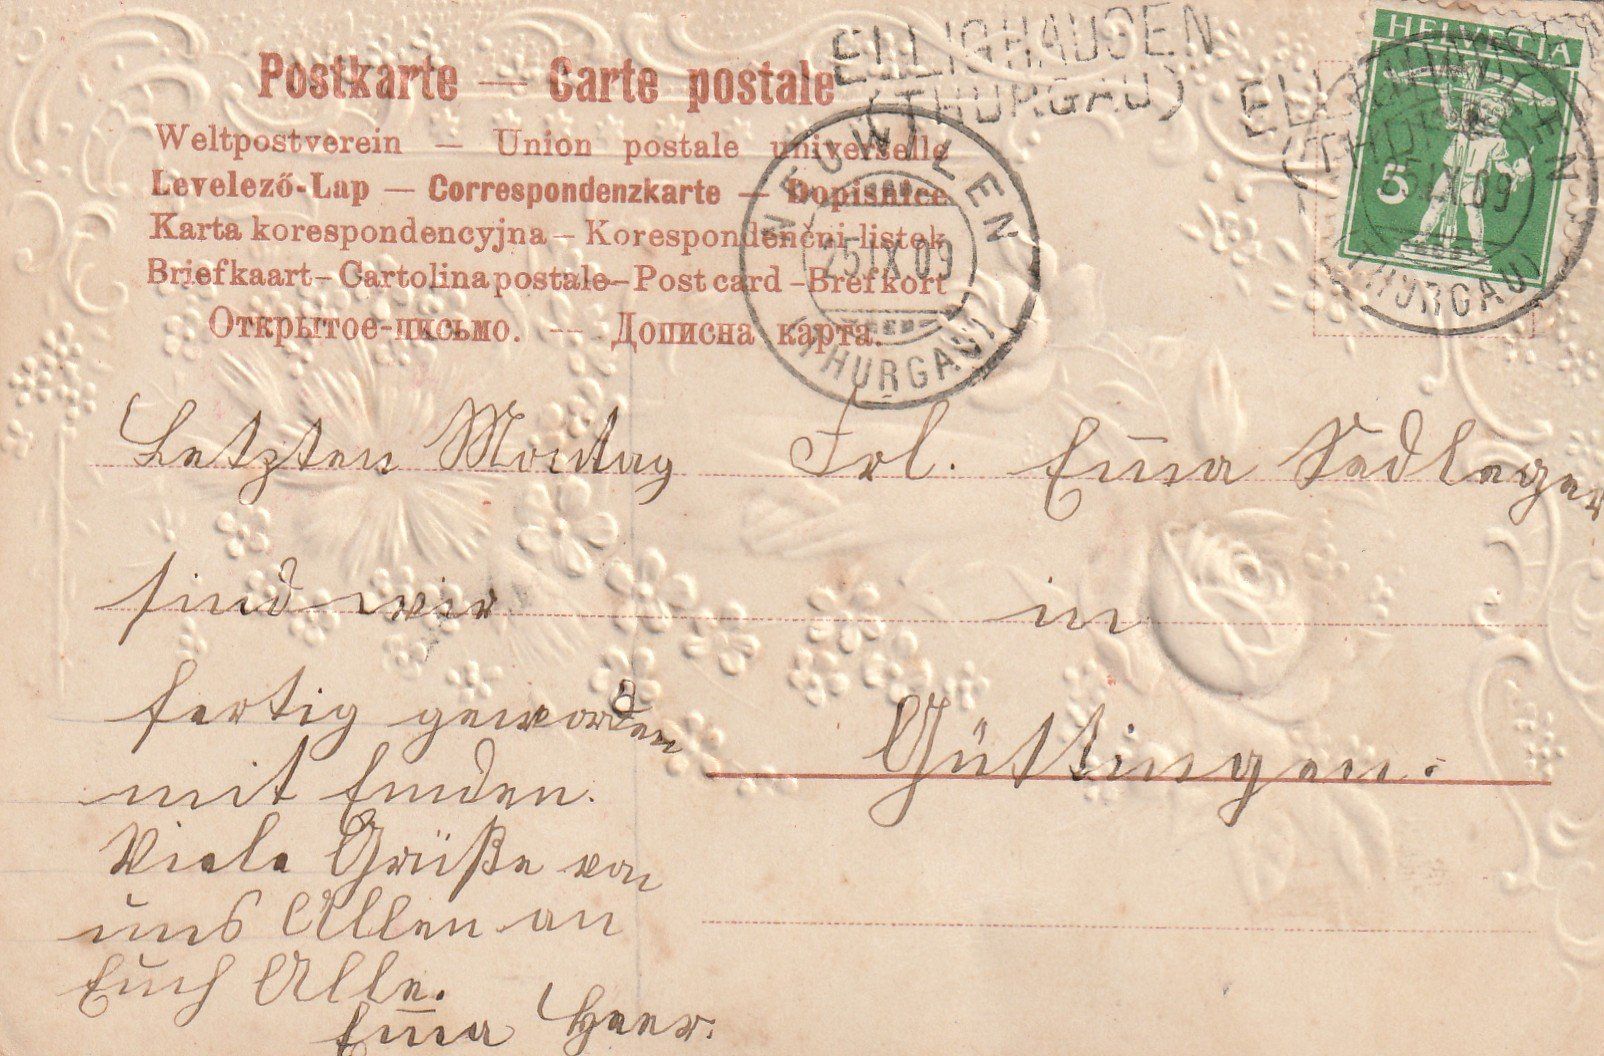 Postkarte — Carte postale
Weltpostverein — Union postale universelle
Levelező-Lap — Correspondenzkarte — Dopisnice
Karta korespondencyjna – Korespondenční listek
Briefkaart – Cartolina postale – Post card – Brefkort
Открытое-письмо. — Дописна карта.
ELLIGHAUSEN
(THURGAU)
NEUWILEN
25 IX 09
(THURGAU)
HELVETIA
5
IX 09
(THURGAU)
Letzten Montag
sind wir
fertig geworden
mit Emden.
Viele Grüße von
uns Allen an
Euch Alle.
Em̅a Heer.
Frl. Em̅a Sedleger
in
Güttingen.